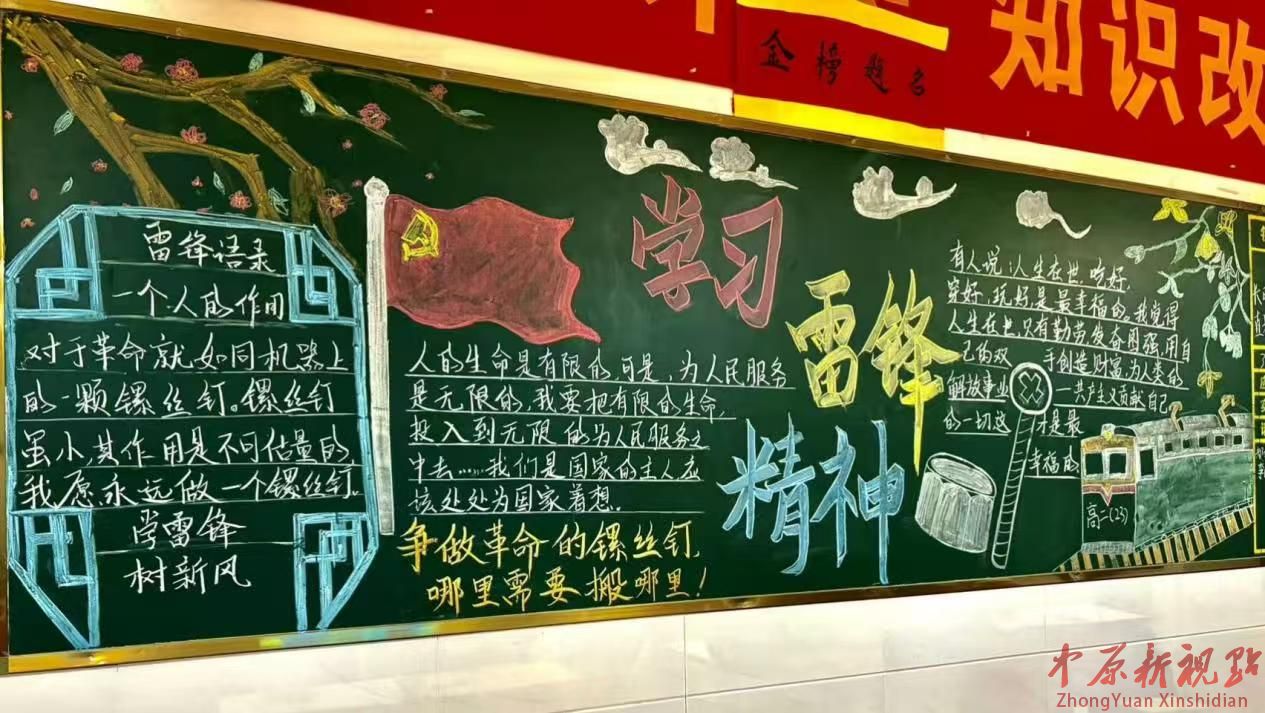 知识改
金榜题名
学习
雷锋
精神
雷锋语录
一个人的作用
对于革命就如同机器上
的一颗镙丝钉。镙丝钉
虽小,其作用是不可估量的
我愿永远做一个镙丝钉。
学雷锋
树新风
人的生命是有限的,可是,为人民服务
是无限的,我要把有限的生命,
投入到无限的为人民服务之
中去……我们是国家的主人应
该处处为国家着想。
争做革命的镙丝钉,
哪里需要搬哪里!
有人说:人生在世,吃好,
穿好,玩好,是最幸福的。我觉得
人生在世,只有勤劳,发奋图强,用自
己的双手创造财富,为人类的
解放事业一共产主义贡献自己
的一切这才是最
幸福的
高二(23)
中原新视點
ZhongYuan Xinshidian